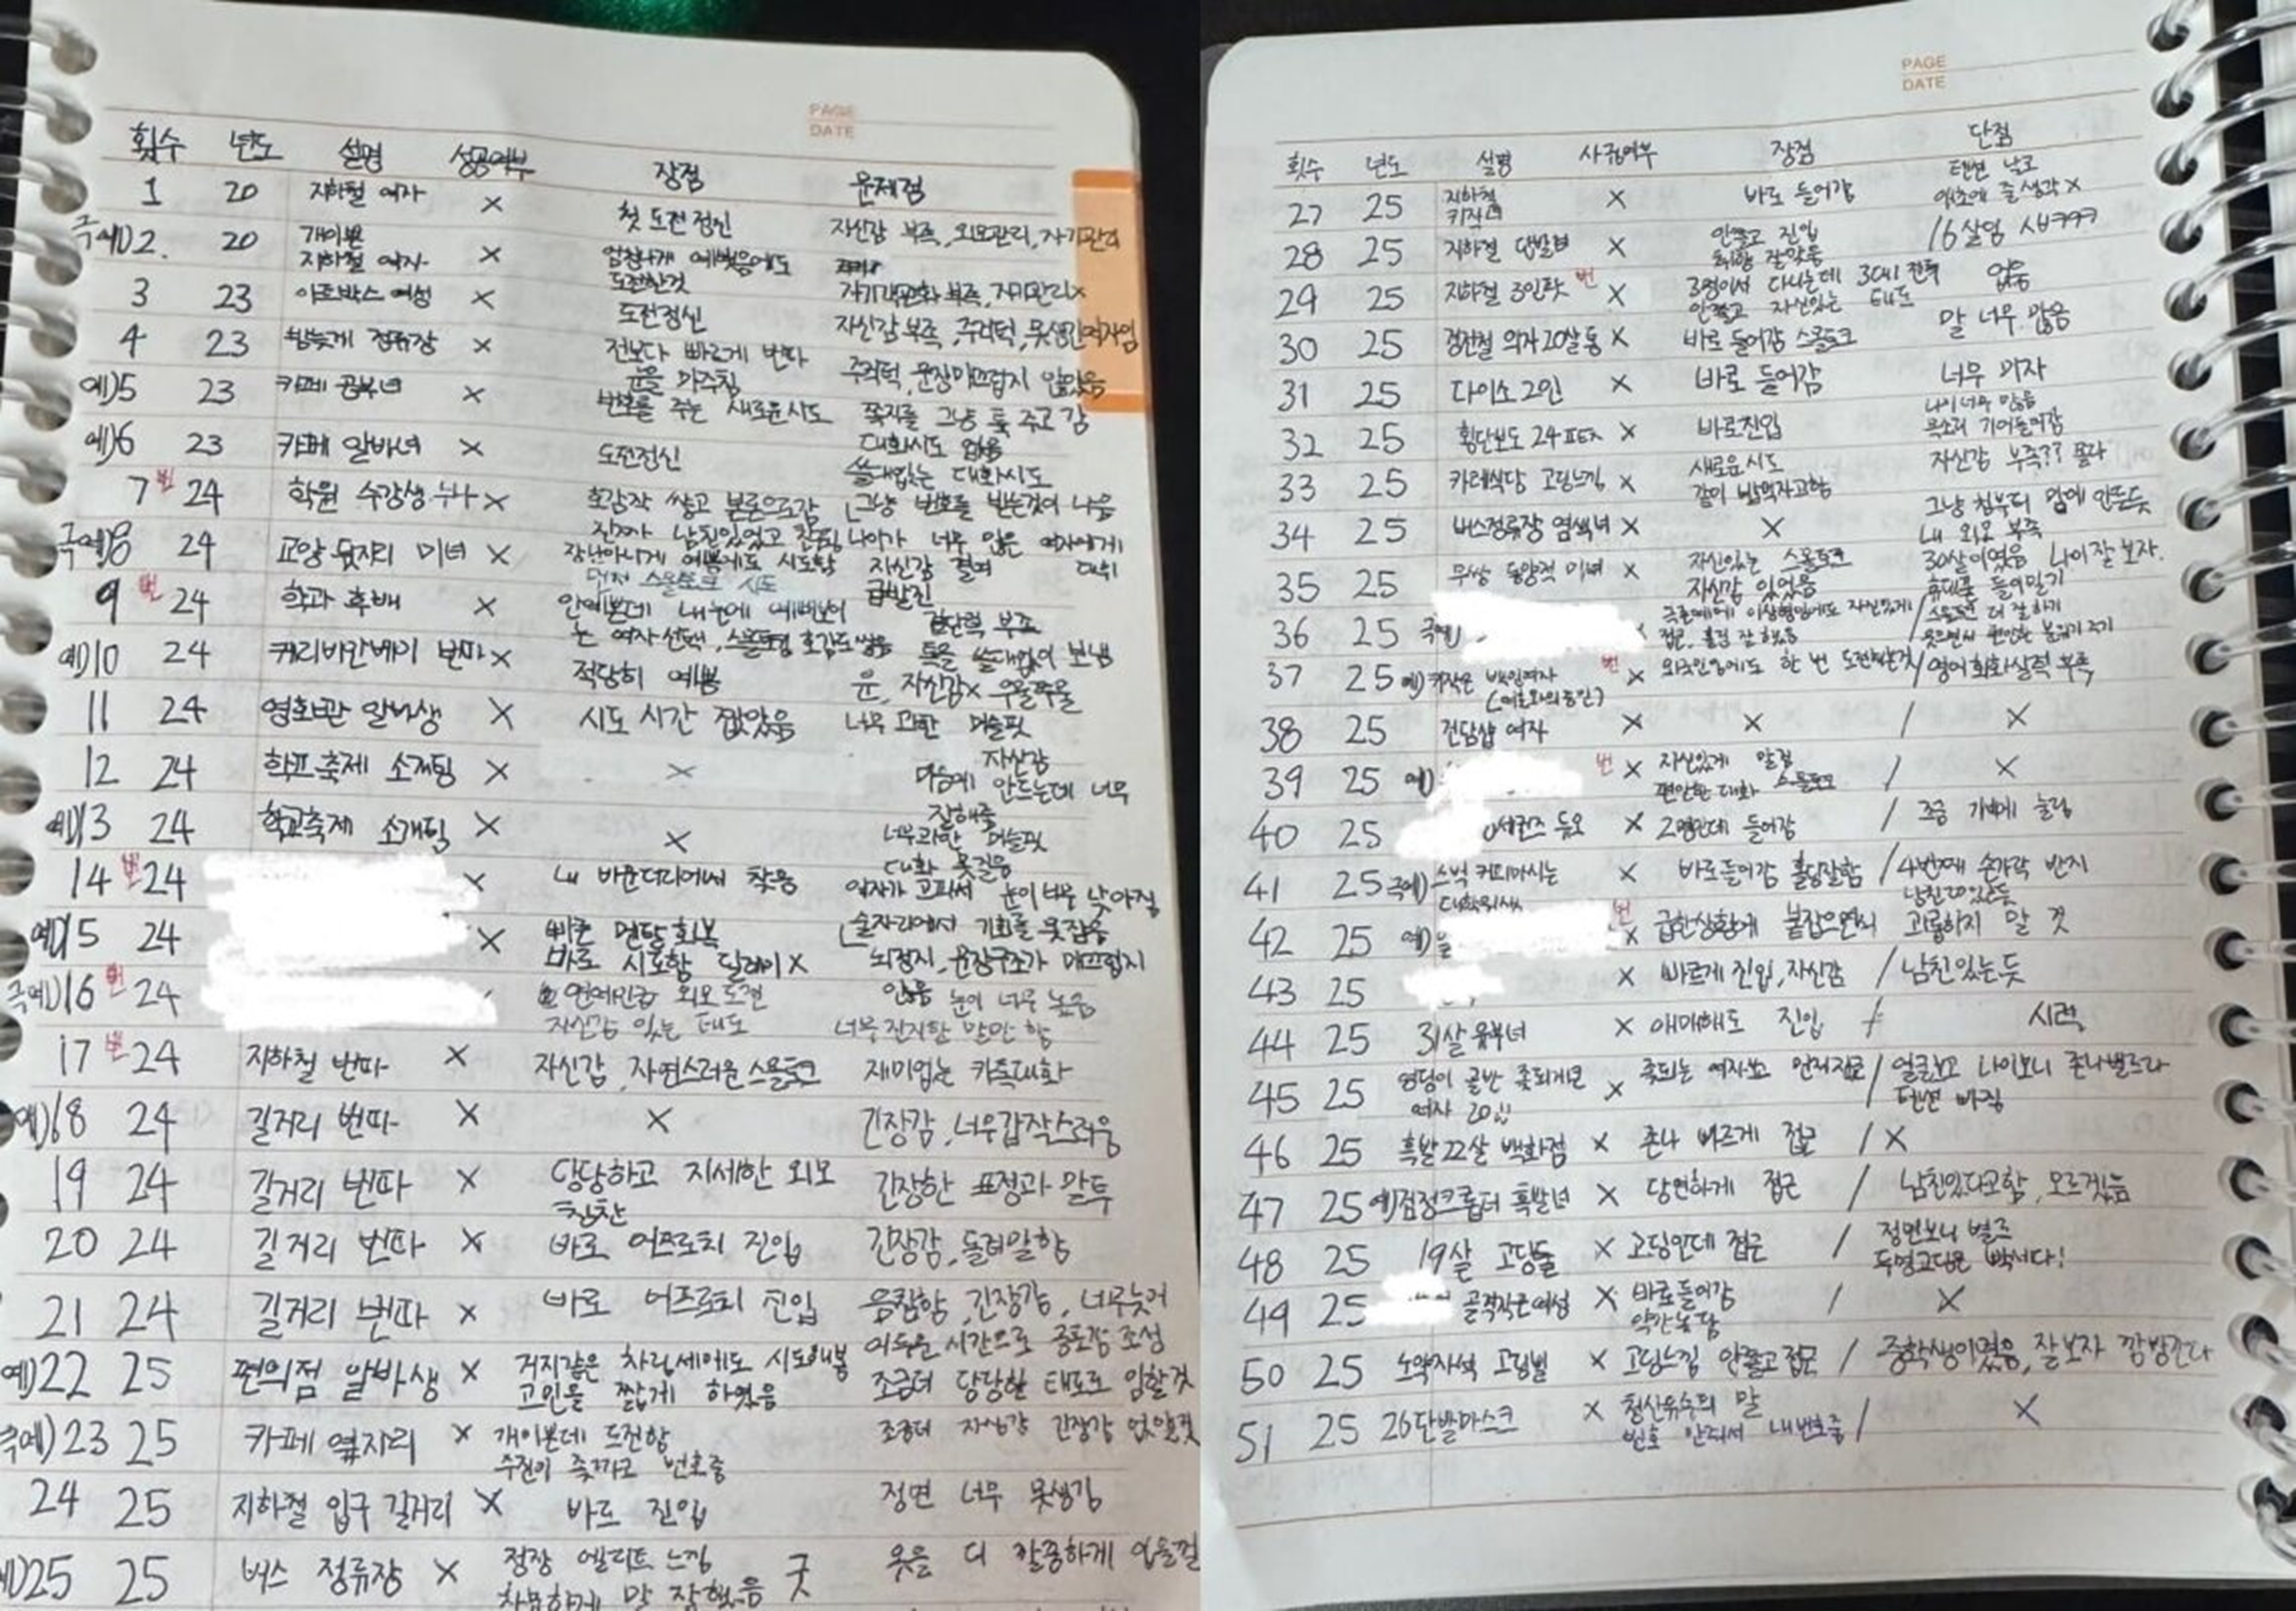 PAGE
DATE
횟수 년도 설명 성공여부 장점 문제점
1 20 지하철 여자 X 첫 도전정신 자신감 부족, 외모관리, 자기관리
극예)2. 20 개이쁜 지하철 여자 X 엄청나게 예뻤음에도 도전한것
3 23 아트박스 여성 X 도전정신 자기객관화 부족, 자기관리X
4 23 밤늦게 정류장 X 전보다 빠르게 번따 자신감 부족, 주걱턱, 못생긴여자임
예)5 23 카페 공부녀 X 눈을 마주침 번호를 주는 새로운시도 주걱턱, 문장매끄럽지 않았음
쪽지를 그냥 툭 주고 감
예)6 23 카페 알바녀 X 도전정신 대화시도 없음
쓸데없는 대화시도
7 번 24 학원 수강생 누나 X 호감작 쌓고 본론으로감 그냥 번호를 받는것이 나음
극예)8 24 고양 옆자리 미녀 X 장난아니게 예쁨에도 시도함 나이가 너무 많은 여자에게
먼저 스몰토크 시도 자신감 결여
9 번 24 학과 후배 X 안예쁜데 내눈에 예뻐보이 급발진
는 여자 선택, 스몰토킹 호감도 쌓음 결단력 부족
예)10 24 캐리비안베이 번따 X 적당히 예쁨 톡을 쓸데없이 보냄
11 24 영화관 알바생 X 시도 시간 짧았음 눈, 자신감X 우물쭈물
12 24 학교축제 소개팅 X X 너무 과한 머슬핏
자신감
마음에 안드는데 너무
잘해줌
예)13 24 학교축제 소개팅 X X 너무과한 머슬핏
대화 못질음
14 번 24 X 내 바운더리에서 찾음 여자가 고파서 눈이 너무 낮아짐
술자리에서 기회를 못잡음
예)15 24 X 빠른 멘탈회복 바로 시도함 딜레이X 뇌정지, 문장구조가 매끄럽지
않음
극예)16 번 24 연예인급 외모 도전 눈이 너무 높음
자신감 있는 태도 너무 진지한 말만 함
17 번 24 지하철 번따 X 자신감, 자연스러운 스몰토크 재미없는 카톡대화
예)18 24 길거리 번따 X X 긴장감, 너무갑작스러움
19 24 길거리 번따 X 당당하고 자세한 외모 칭찬 긴장한 표정과 말투
20 24 길거리 번따 X 바로 어프로치 진입 긴장감, 돌려말함
21 24 길거리 번따 X 바로 어프로치 진입 음침함, 긴장감, 너무늦어
어두운 시간으로 공포감 조성
예)22 25 편의점 알바생 X 거지같은 차림새에도 시도해봄 고민을 짧게 하였음 조금더 당당한 태도로 임할것
극예)23 25 카페 옆자리 X 개이쁜데 도전함 수전이 좆까고 번호줌 조금더 자신감 긴장감 없앨것
24 25 지하철 입구 길거리 X 바로 진입 정면 너무 못생김
예)25 25 버스 정류장 X 정장 엘리트 느낌 굿 옷을 더 깔끔하게 입을걸
차분하게 말 잘했음
PAGE
DATE
횟수 년도 설명 사귐여부 장점 단점
27 25 지하철 키작녀 X 바로 들어감 텐션 낮고
애초에 줄 생각X
28 25 지하철 단발녀 X 안쫄고 진입 취향 잘맞춤 16살임 시발ㅋㅋㅋ
29 25 지하철 3인팟 번 X 3명이서 다니는데 3대1 전투 없음
안쫄고 자신있는 태도
30 25 경전철 의자 20살 통 X 바로 들어감 스몰토크 말 너무 많음
31 25 다이소 2인 X 바로 들어감 너무 미자
32 25 횡단보도 24 X 바로진입 나이너무 많음
목소리 기어들어감
33 25 카레식당 고딩느낌 X 새로운시도 같이 밥먹자고함 자신감 부족?? 몰라
34 25 버스정류장 염색녀 X X 그냥 첨부터 맘에 안든듯
내 외모 부족
35 25 무쌍 동양적 미녀 X 자신있는 스몰토크 자신감 있었음 30살이였음 나이 잘 보자.
휴대폰 들이밀기
36 25 극예) X 극존예에 이상형임에도 자신있게 / 스몰토크 더 잘 하기
접근, 플러팅 잘 했음 웃으면서 편안한 분위기 주기
37 25 예) 키작은 백인여자 번 X 외국인임에도 한 번 도전해본것 / 영어회화실력 부족
38 25 전담샵 여자 X X / X
39 25 예) 번 X 자신있게 말걺 편안한 대화 스몰토크 / X
40 25 듀오 X 2명인데 들어감 / 조금 가볍게 눌림
41 25 극예) 스벅 커피마시는 대학원생 X 바로들어감 플러팅말함 / 4번째 손가락 반지
남친 있는듯
42 25 예) 번 X 급한상황에 붙잡으면서 과몰입하지 말 것
43 25 X 빠르게 진입, 자신감 / 남친있는듯
44 25 31살 유부녀 X 애매해도 진입 / 시력
45 25 엉덩이 골반 좆되게큰 여자 20 X 좆되는 여자보고 먼저접근 / 얼굴보고 나이보니 존나별로라
텐션 빠짐
46 25 흑발 22살 백화점 X 존나 빠르게 접근 / X
47 25 예) 검정크롭티 흑발녀 X 당연하게 접근 / 남친있다고함, 모르겠음
48 25 19살 고딩들 X 고딩인데 접근 / 정면보니 별로
두명고딩은 빡세다!
49 25 골격작은여성 X 바로들어감 약간농담 / X
50 25 노약자석 고딩삘 X 고딩느낌 안쫄고접근 / 중학생이였음, 잘보자 깜방간다
51 25 26단발마스크 X 청산유수의 말 번호 안줘서 내번호줌 / X